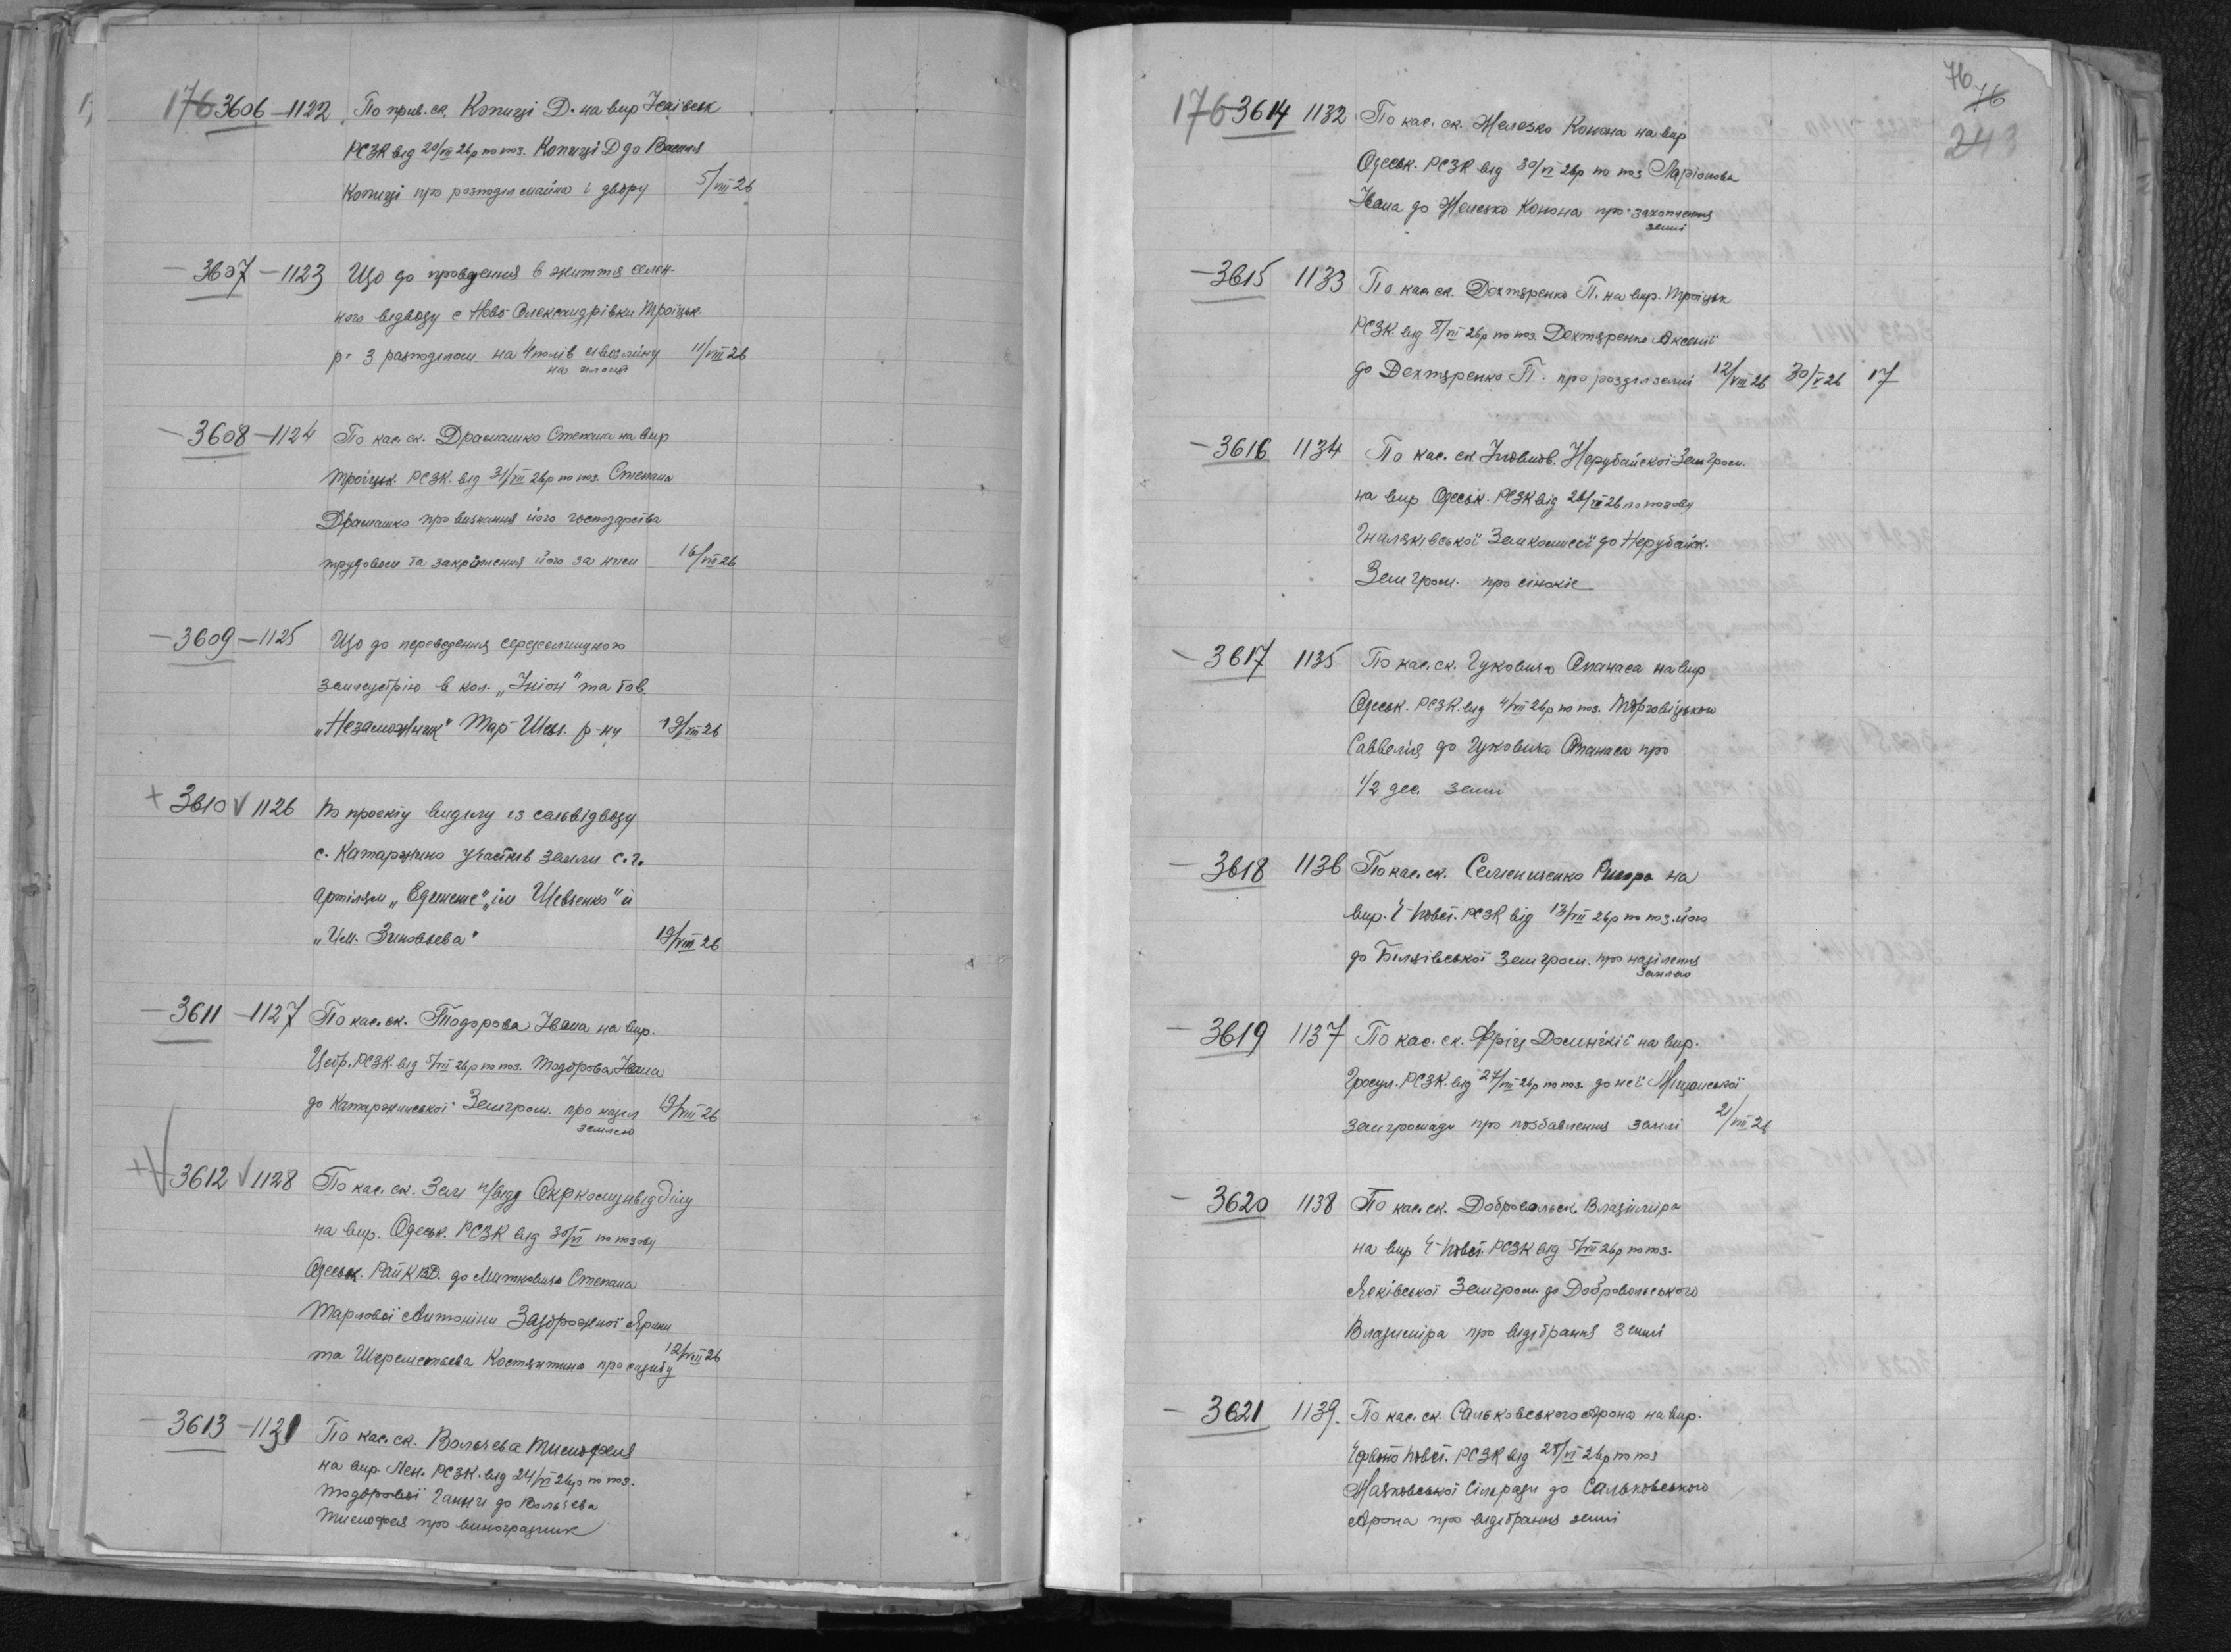 176 3606 – 1122 По прив. ск. Копиці Д. на вир
РСЗК від 20/VII 26р по поз. Копиці Д до Василя
Копиці про розподіл майна і двору 5/VIII 26
– 3607 – 1123 Що до проведення в життя селен-
ного відводу с Ново Олександрівки Троїцьк.
р- з разподілом на 4 полів сівозміну 11/VIII 26
на площі
– 3608 – 1124 По кас. ск. Драмашко Степана на вир
Троїцьк. РСЗК. від 31/VII 26р по поз. Степана
Драмашко про визнання його господарства
трудовим та закріплення його за ним 16/VIII 26
– 3609 – 1125 Що до переведення середселищного
землеустрію в кол. „Уніон" та тов.
„Незаможник" Тар Шев. р-ну 19/VIII 26
+ 3610 V 1126 По проекту виділу із сельвідводу
с. Катаржино участків землі с.г.
артілям „Единение", „ім Шевченко" и
„Им. Зиновьева" 19/VIII 26
– 3611 – 1127 По кас. ск. Тодорова Івана на вир.
Цебр. РСЗК. від 5/VII 26р по поз. Тодорова Івана
до Катаржинської Земгром. про наділ 19/VIII 26
землею
+ V 3612 V 1128 По кас. ск. Зем п/відд Окркомунвідділу
на вир. Одеськ. РСЗК від 30/VI по позову
Одеськ. Рай КВД. до Матковича Степана
Тарлової Антоніни Задорожної Ярини
та Шереметьева Костянтина про садибу 12/VIII 26
– 3613 – 1131 По кас. ск. Вольчева Тимофея
на вир. Лен. РСЗК. від 24/VI 26р по поз.
Тодорової Ганни до Вольчева
Тимофея про виноградник
76
76
243
176 3614 1132 По кас. ск. Железко Конона на вир
Одеськ. РСЗК від 30/VI 26р по поз Ларіонова
Івана до Железко Конона про захоплення
землі
– 3615 1133 По кас. ск. Дехтяренко П. на вир. Троїцьк
РСЗК. від 8/VII 26р по поз. Дехтяренко Аксенії
до Дехтяренко П. про розділ землі 12/VIII 26 30/X 26 17
– 3616 1134 По кас. ск Нерубайскої Земгром.
на вир. Одеськ. РСЗК від 26 по позову
Гниляківської Земкомисії до Нерубайск.
Земгром. про сінокіс
– 3617 1135 По кас. ск. Чуковича Опанаса на вир
Одеськ. РСЗК. від 4/VII 26р по поз. Торговіцького
Саввелія до Чуковича Опанаса про
1/2 дес. землі
– 3618 1136 По кас. ск. Семениченко на
вир. РСЗК від 13/VII 26р по поз. його
до Біляївської Земгром. про наділення
землею
– 3619 1137 По кас. ск. Фріц Домінікії на вир.
Гросул. РСЗК. від 27/VII 26р по поз. до неї Міщанської
земгромади про позбавлення землі 21/VIII 26
– 3620 1138 По кас. ск. Добровольськ. Владиміра
на вир РСЗК від 5/VII 26р по поз.
Яськівської Земгром. до Добровольського
Владиміра про відібрання землі
– 3621 1139. По кас. ск. Сальковського Арона на вир.
РСЗК від 28/VI 26р по поз
Маяковської Сільради до Сальковського
Арона про відібрання землі